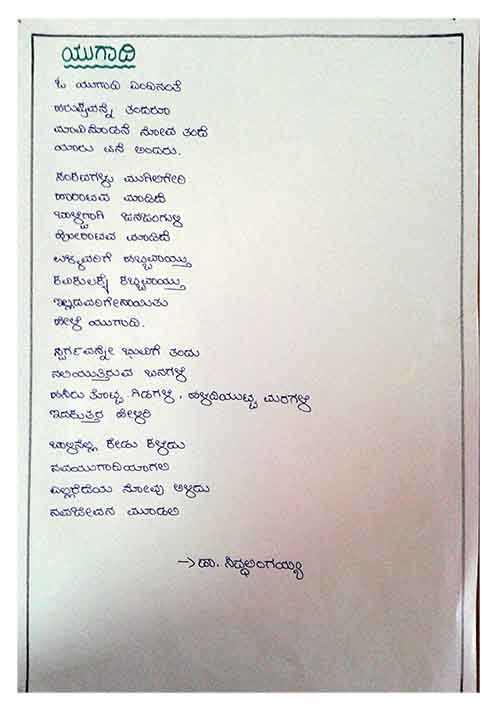 ಯುಗಾದಿ
ಓ ಯುಗಾದಿ ಎಂದಿನಂತೆ
ಹರುಷವನ್ನೆ ತಂದರೂ
ಮಾವಿನೊಡನೆ ನೋವ ತಂದೆ
ಯಾರು ಏನೆ ಅಂದರು.
ಸಂಕಟಗಳು ಮುಗಿಲಿಗೇರಿ
ಹಾರಾಟವ ಮಾಡಿದೆ
ಬಾಳ್ವೆಗಾಗಿ ಜನಜಂಗುಳಿ
ಹೋರಾಟವ ಮಾಡಿದೆ
ಉಳ್ಳವರಿಗೆ ಹಬ್ಬವಾಯ್ತು
ಕವಿಕುಲಕ್ಕೆ ಕಬ್ಬವಾಯ್ತು
ಇಲ್ಲದವರಿಗೇನಾಯಿತು
ಹೇಳೆ ಯುಗಾದಿ.
ಸ್ವರ್ಗವನ್ನೇ ಭುವಿಗೆ ತಂದು
ನಲಿಯುತ್ತಿರುವ ಬನಗಳೆ
ಹಸಿರು ತೊಟ್ಟ ಗಿಡಗಳೆ, ಹಳದಿಯುಟ್ಟ ಮರಗಳೆ
ಇದಕುತ್ತರ ಹೇಳಿರಿ
ಬಾಳಿನೆಲ್ಲ ಕೇಡು ಕಳೆದು
ನವಯುಗಾದಿಯಾಗಲಿ
ಎಲ್ಲರೆದೆಯ ನೋವು ಅಳಿದು
ನವಜೀವನ ಮೂಡಲಿ
→ ಡಾ. ಸಿದ್ಧಲಿಂಗಯ್ಯ